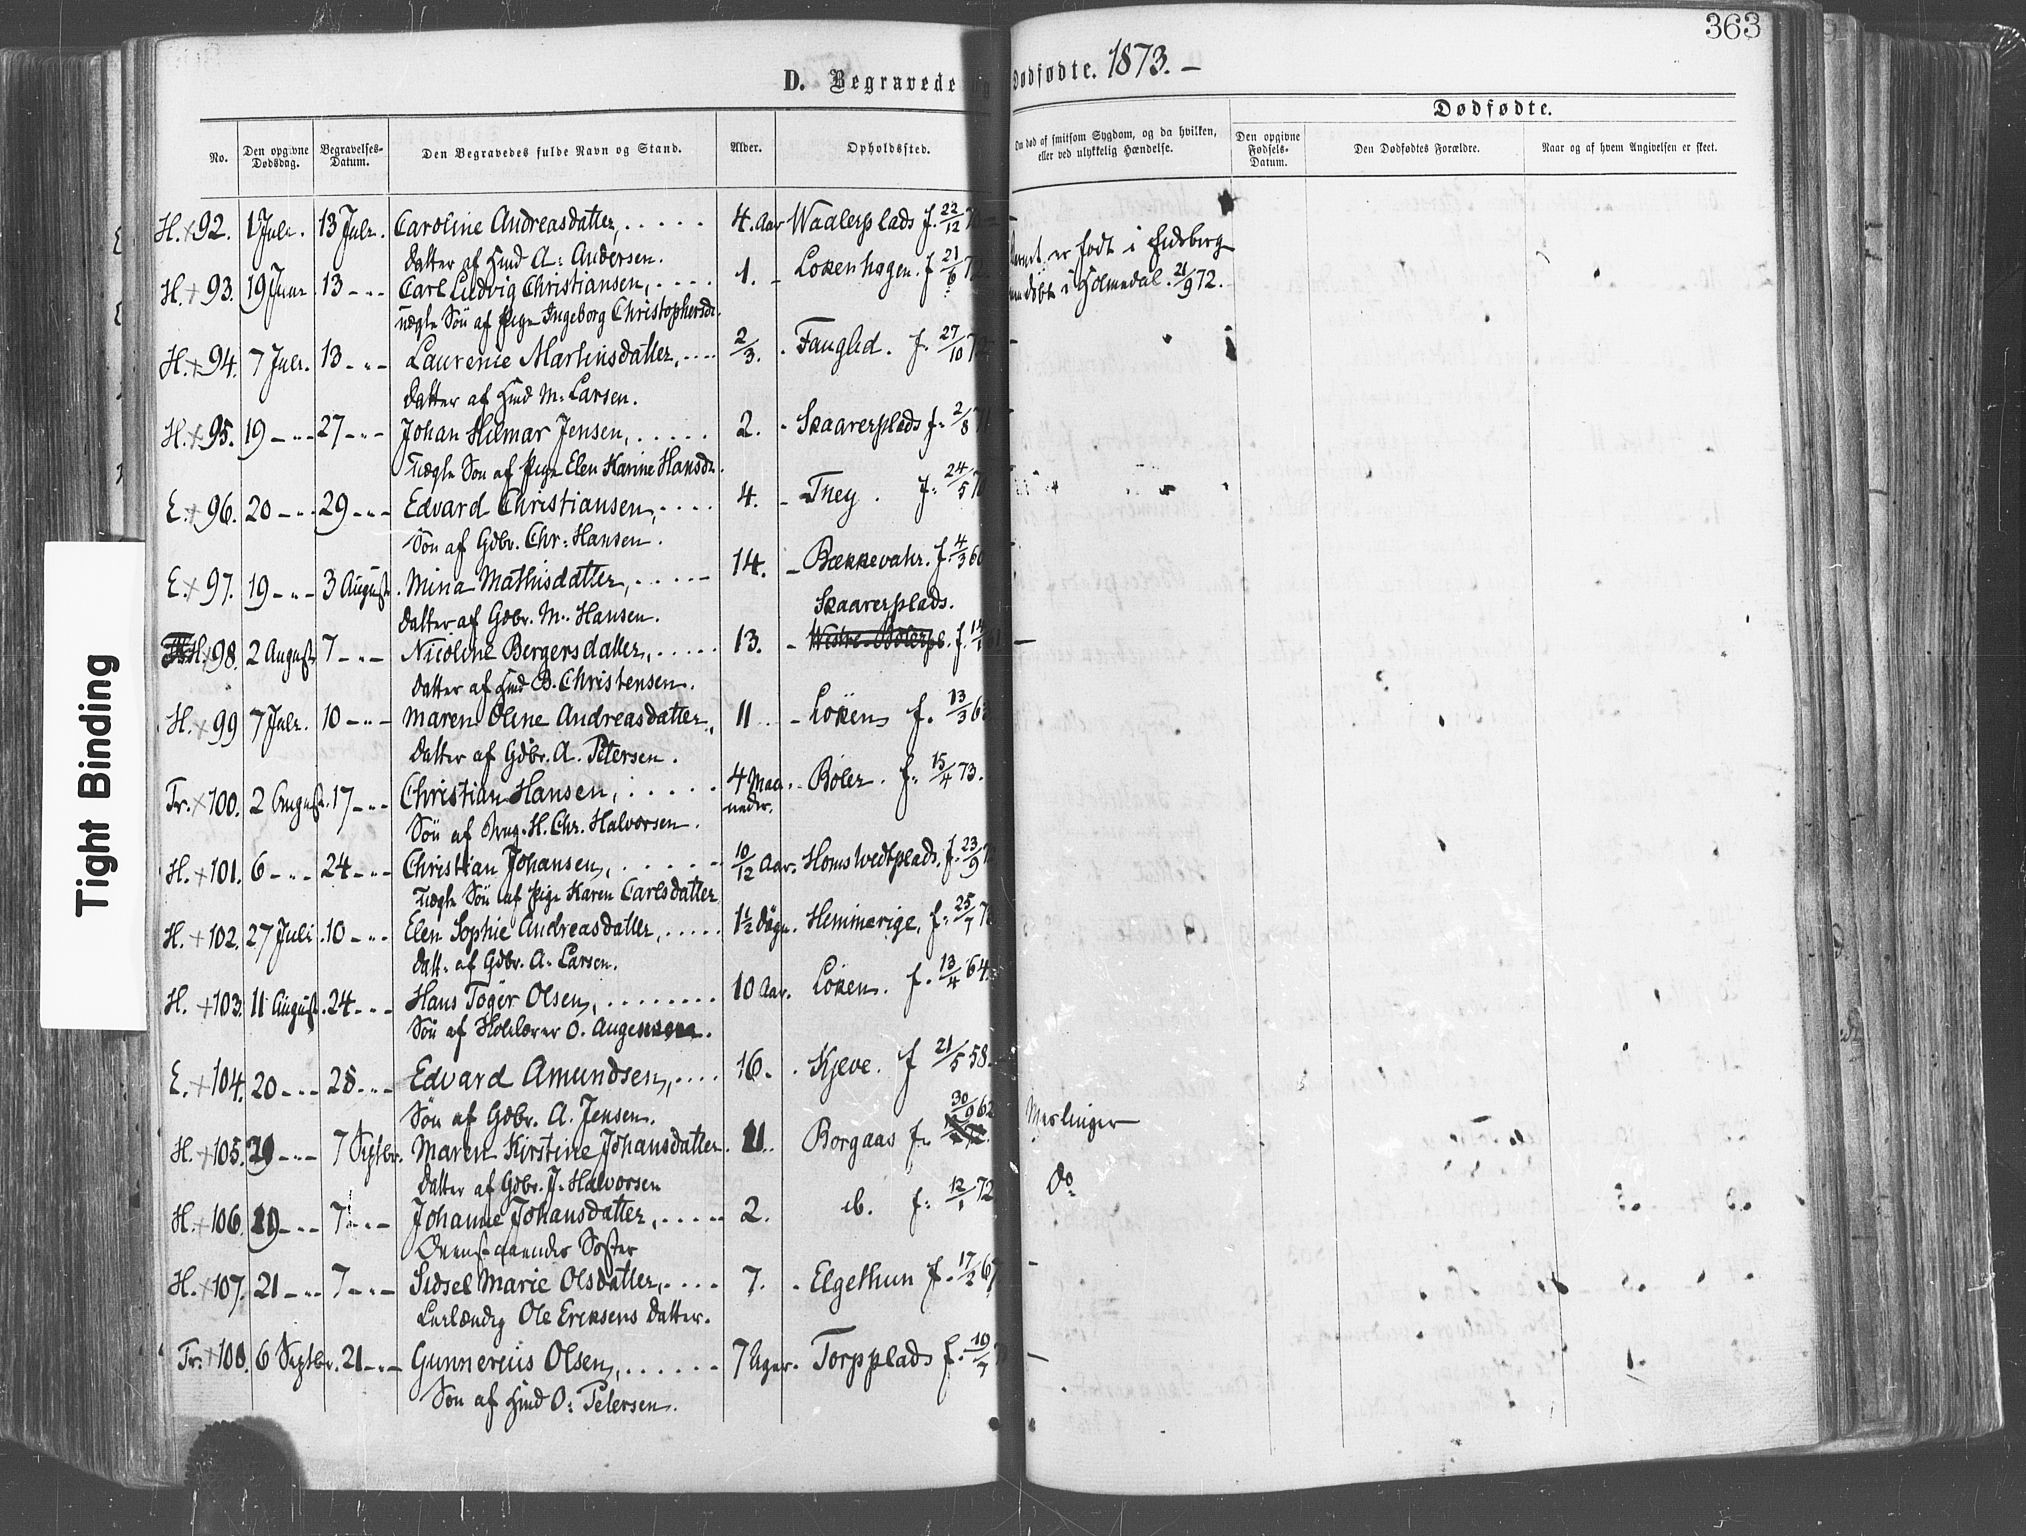 363
D. Begravede og Dødfødte. 1873. –
Dødfødte.
No.
Den opgivne Dødsdag.
Begravelses-Datum.
Den Begravedes fulde Navn og Stand.
Alder.
Opholdssted.
Om død af smitsom Sygdom, og da hvilken, eller ved ulykkelig Hændelse.
Den opgivne Fødsels-Datum.
Den Dødfødtes Forældre.
Naar og af hvem Angivelsen er skeet.
H. + 92. 1 Juli. 13 Juli. Caroline Andreasdatter, 4. Aar Waalerplads f. 22/12
Datter af Hmd A: Andersen.
H. + 93. 19 Juni. 13 - " - Carl Ludvig Christiansen, 1. - Lökenhagen. f 21/6 72. er født i Eidsberg
uægte Sön af Pige Ingeborg Christophersd. döbt i Holmedal. 21/9 72.
H. + 94. 7 Juli. 13 - " - Laurence Martinsdatter, 2/3. Fanglid. f. 27/10
Datter af Hmd M. Larsen.
H. + 95. 19 - " - 27 - " - Johan Hilmar Jensen, 2. - Skaarerplads f. 2/8 71
Uægte Sön af Pige Elen Karine Hansdr.
E. + 96. 20 - " - 29 - " - Edvard Christiansen, 4. - f. 24/5
Sön af Gdbr. Chr: Hansen.
E. + 97. 19 - " - 3 August. Mina Mathisdatter, 14. - Bækkevahr. f. 4/3 60
Datter af Gdbr. M. Hansen. Skaarerplads.
H. 98. 2 August 7 - " - Nicoline Bergersdatter, 13. - Westre Bölerpl. f.
Datter af Hmd B. Christensen.
H. + 99 7 Juli. 10 - " - Maren Oline Andreasdatter, 11 - Löken f. 13/3
Datter af Gdbr. A. Petersen.
Tr. + 100. 2 August. 17 - " - Christian Hansen, 4 Maaneder. Böler. f. 15/4 73.
Sön af H. Chr. Halvorsen.
H. + 101. 6 - " - 24 - " - Christian Johansen, 10/12 Aar. Homstvedtplads. f. 23/9
Uægte Sön af Pige Karen Carlsdatter
H. + 102. 27 Juli. 10 - " - Elen Sophie Andreasdatter, 1½ Dögn. Hemmerige. f. 25/7
Datt. af Gdbr. A. Larsen.
H. + 103. 11 August. 24 - " - Hans Töger Olsen, 10 Aar. Löken. f. 13/4 64.
Sön af Skolelærer O. Augensen.
E. + 104. 20 - " - 28 - " - Edvard Amundsen, 16. Kjeve. f 21/5 58.
Sön af Gdbr. A. Jensen.
H. + 105. 20 - " - 7 Septbr. Maren Kirstine Johansdatter. 11. Borgaas f. 30/9 62 Meslinger
Datter af Gdbr. J. Halvorsen
H. + 106. 20 - " - 7 - " - Johanne Johansdatter, 2. ib. f. 12/1 72 Do
Ovenstaaendes Söster
H. + 107. 21 - " - 7 - " - Sidsel Marie Olsdatter, 7. Elgethun f. 17/2 67
Leilændig Ole Eriksens Datter.
Tr. + 108. 6 Septbr. 21 - " - Gunnerius Olsen, 7 Uger. Torpplads f. 19/7
Sön af Hmd O: Petersen.
Tight Binding